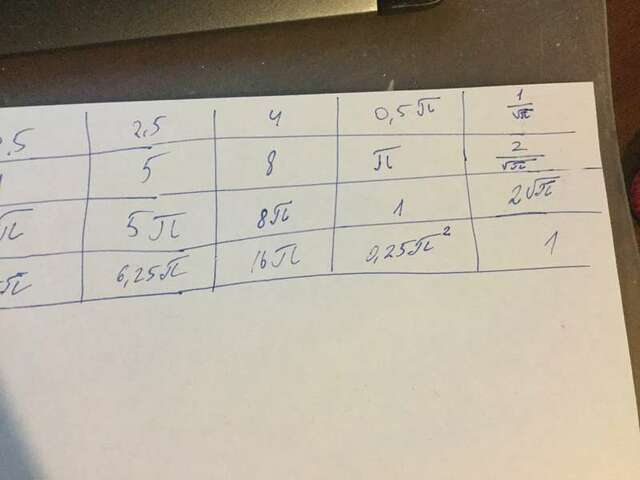 ,5 2,5 4 0,5π 1/√π
5 8 π 2/√π
π 5π 8π 1 2√π
π 6,25π 16π 0,25π² 1